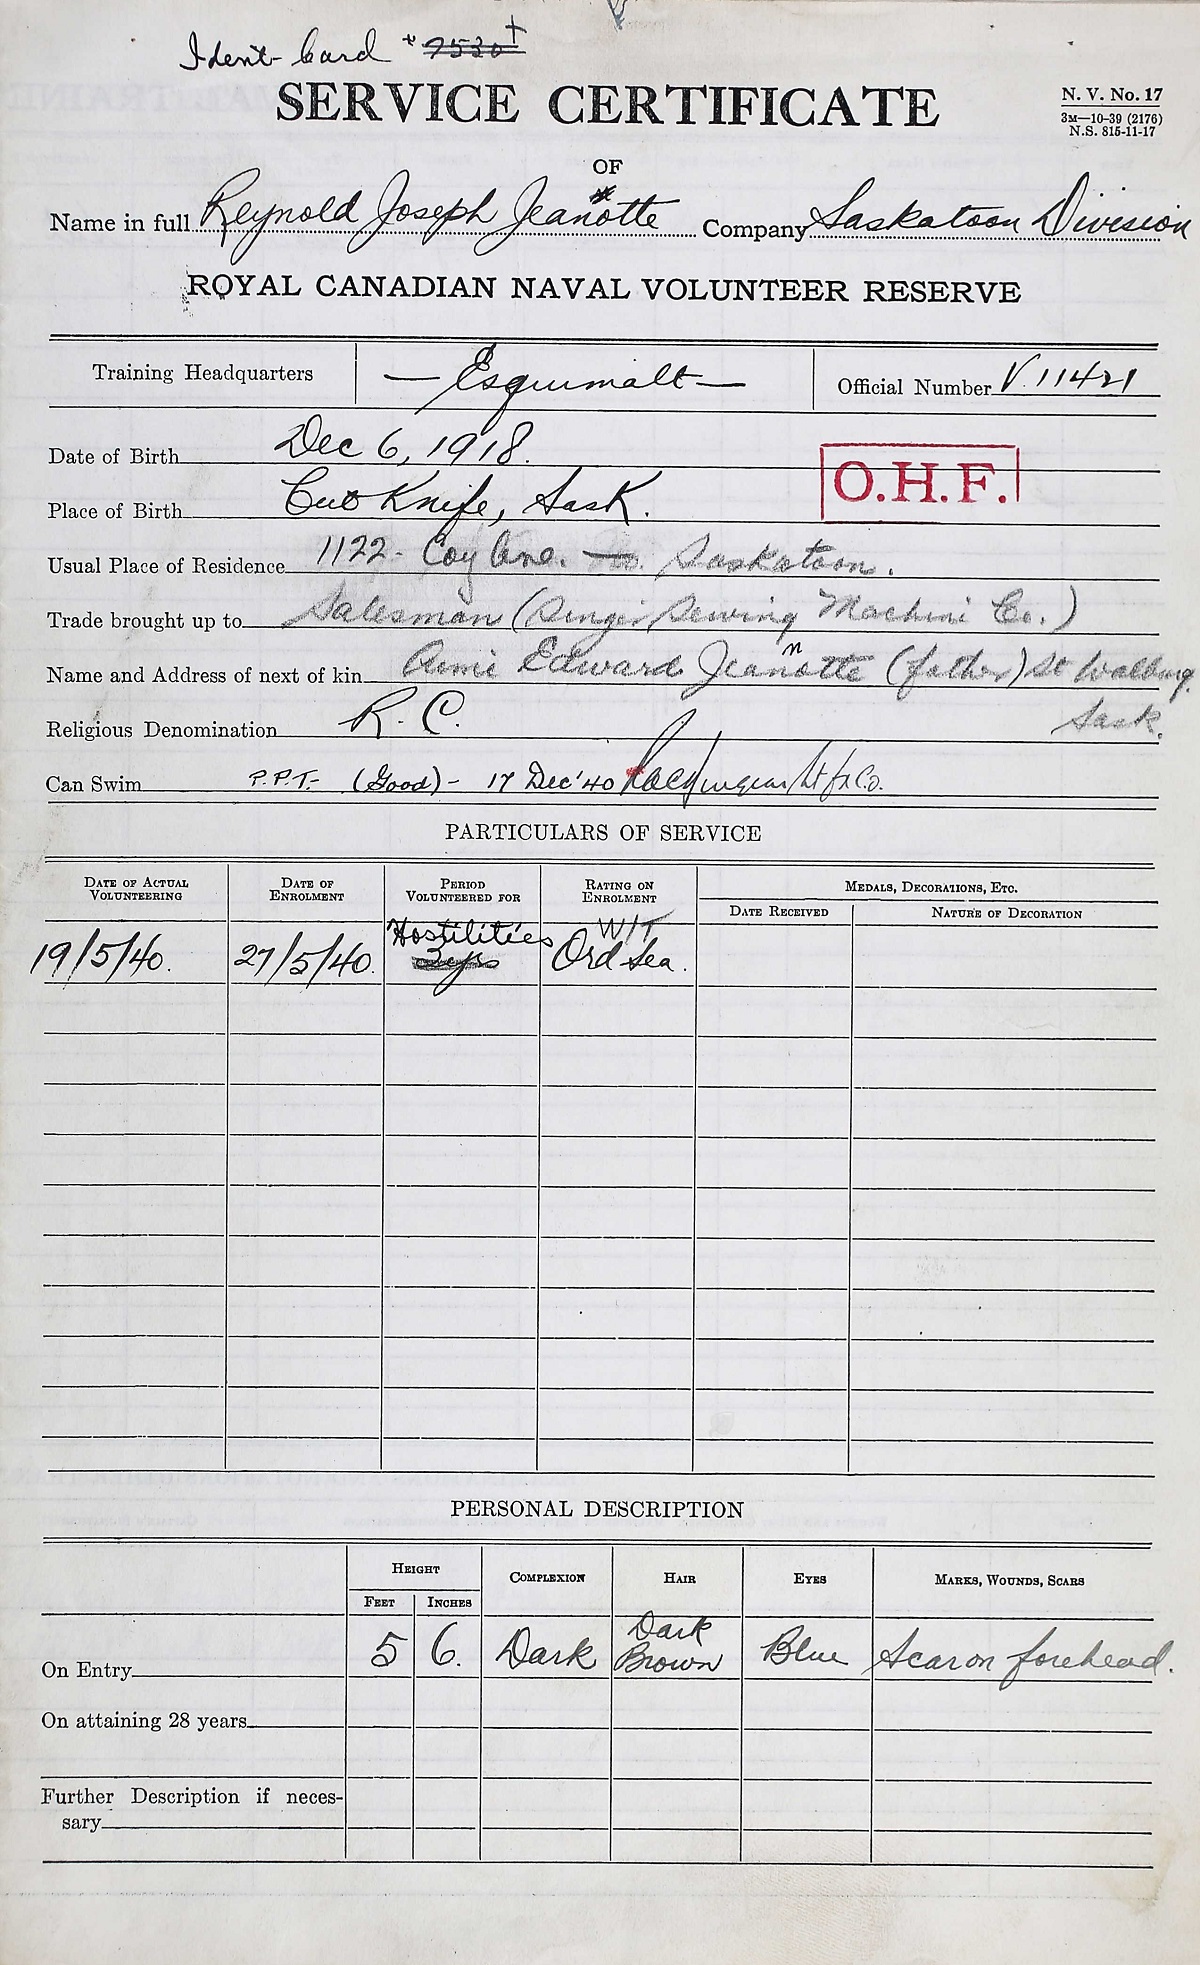 Ident Card 7530
SERVICE CERTIFICATE
N. V. No. 17
3M—10-39 (2176)
N.S. 815-11-17
OF
Name in full Reynold Joseph Jeanotte Company Saskatoon Division
ROYAL CANADIAN NAVAL VOLUNTEER RESERVE
Training Headquarters — Esquimalt — Official Number V 11421
Date of Birth Dec 6, 1918.
O.H.F.
Place of Birth Cut Knife, Sask.
Usual Place of Residence 1122 - Coy Ave. Saskatoon.
Trade brought up to Salesman (Singer Sewing Machine Co.)
n
Name and Address of next of kin Aimé Edward Jeanotte (father) St Walburg,
Sask.
Religious Denomination R. C.
Can Swim P.P.T. - (Good) - 17 Dec '40
PARTICULARS OF SERVICE
DATE OF ACTUAL VOLUNTEERING DATE OF ENROLMENT PERIOD VOLUNTEERED FOR RATING ON ENROLMENT MEDALS, DECORATIONS, ETC.
DATE RECEIVED NATURE OF DECORATION
Hostilities W/T
19/5/40. 27/5/40. 3 yrs Ord Sea.
PERSONAL DESCRIPTION
HEIGHT COMPLEXION HAIR EYES MARKS, WOUNDS, SCARS
FEET INCHES
Dark
On Entry 5 6. Dark Brown Blue Scar on forehead.
On attaining 28 years
Further Description if neces-
sary